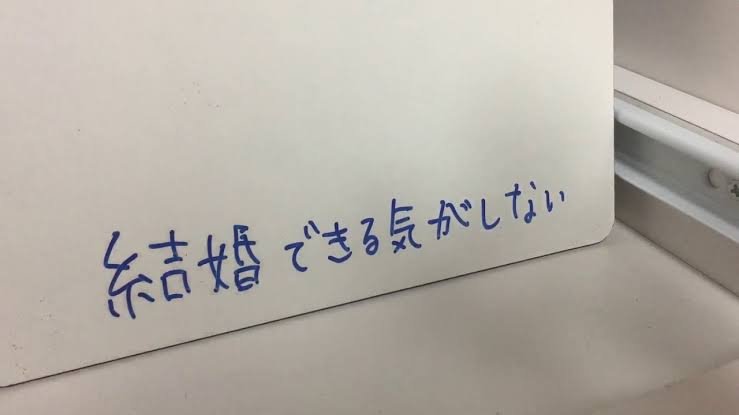 結婚できる気がしない